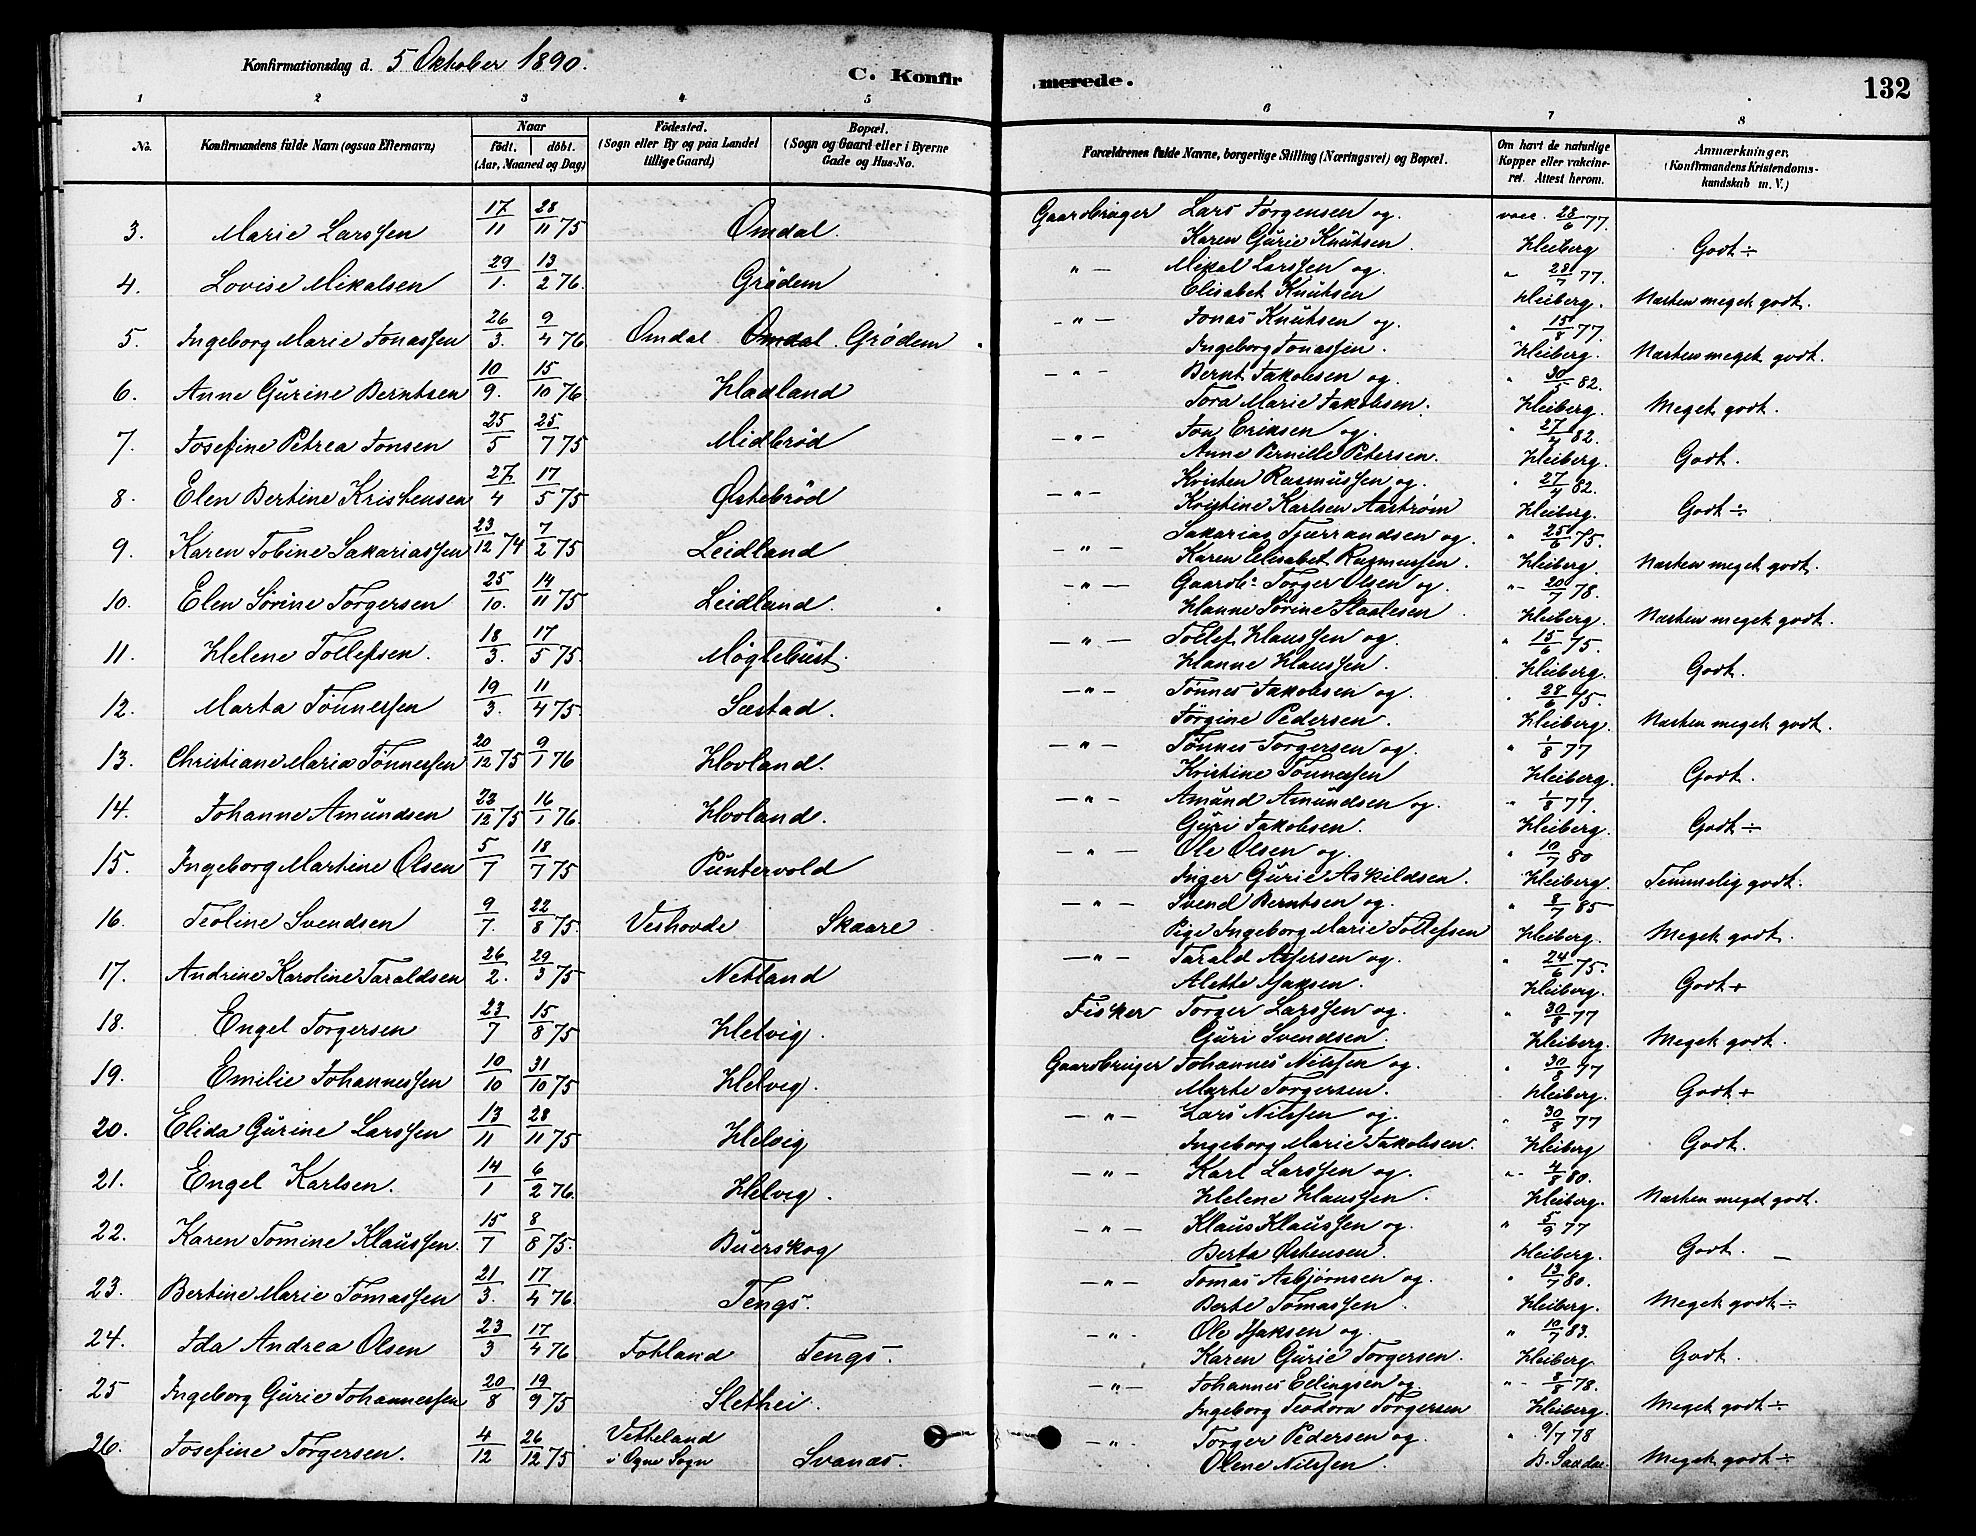 Konfirmationsdag d. 5 Oktober 1890.
C. Konfir merede.
132
1 2 3 4 5 6 7 8
No. Konfirmandens fulde Navn (ogsaa Efternavn) Naar født. døbt. (Aar, Maaned og Dag) Fødested. (Sogn eller By og paa Landet tillige Gaard) Bopæl. (Sogn og Gaard eller i Byerne Gade og Hus-No. Forældrenes fulde Navne, borgerlige Stilling (Næringsvei) og Bopæl. Om havt de naturlige Kopper eller vakcineret. Attest herom. Anmærkninger. (Konfirmandens Kristendomskundskab m. V.)
3. Marie Larssen 17/11 28/11 75 Omdal. Gaardbruger Lars Torgensen og vacc. 28/6 77.
Karen Gurie Knutsen. Heiberg Godt ÷
4. Lovise Mikalsen 29/1. 13/2 76. Grødem " Mikal Larssen og. " 28/7 77.
Elisabet Knutsen Heiberg. Næsten meget godt.
5. Ingeborg Marie Jonassen 26/3. 9/4 76 Omdal Omdal. Grødem. " Jonas Knutsen og. " 15/8 77.
Ingeborg Jonassen. Heiberg. Næsten meget godt.
6. Anne Gurine Berntsen 10/9. 15/10 76. Hadland " Bernt Jakobsen og. " 30/5 82.
Tora Marie Jakobsen. Heiberg. Meget godt.
7. Josefine Petrea Jonsen 25/5 25/7 75 Midbrød " Jon Eriksen og. " 27/4 82.
Anne Pernille Petersen. Heiberg. Godt.
8. Elen Bertine Kristensen 27/4 17/5 75 Østebrød " Kristen Rasmussen og. " 27/4 82.
Kristine Karlsen Aastrøm Heiberg. Godt ÷
9. Karen Tobine Sakariassen 23/12 74 7/2 75 Leidland " Sakarias Tjerrandsen og. " 25/6 75.
Karen Elisabet Rasmussen. Heiberg. Næsten meget godt.
10. Elen Sørine Torgersen 25/10. 14/11 75 Leidland. " Gaardb. Torger Olsen og. " 20/7 78.
Hanne Sørine Staalesen Heiberg. Næsten meget godt.
11. Helene Tollefsen. 18/3. 17/5 75. Møglebust. " Tollef Klaussen og. " 15/6 75.
Hanne Klaussen. Heiberg. Godt.
12. Marta Tønnessen 19/3. 11/4 75. Sæstad. " Tønnes Jakobsen og. " 28/6 75.
Jørgine Pedersen. Heiberg. Næsten meget godt.
13. Christiane Maria Tønnessen 20/12 75 9/1 76 Hovland. " Tønnes Torgersen og. " 1/8 77
Kristine Tønnessen Heiberg. Godt.
14. Johanne Amundsen 23/12 75 16/1 76. Hovland. " Amund Amundsen og. " 1/8 77.
Guri Jakobsen. Heiberg. Godt ÷
15. Ingeborg Martine Olsen 5/7 18/7 75 Puntervold " Ole Olsen og. " 10/7 80
Inger Gurie Askildsen. Heiberg. Temmelig godt.
16. Teoline Svendsen 9/7. 22/8 75. Veshovde Skaare. " Svend Berntsen og. " 8/7 85
Pige Ingeborg Marie Tollefsen Heiberg. Meget godt.
17. Andrine Karoline Taraldsen 26/2. 29/3 75 Netland " Tarald Assersen og. " 24/6 75.
Alette Isaksen. Heiberg. Godt +
18. Engel Torgersen 23/7 15/8 75 Helvig. Fisker Torger Larssen og. " 30/8 77
Guri Svendsen. Heiberg. Meget godt.
19. Emilie Johannessen 10/10 31/10 75 Helvig. Gaardbruger Johannes Nilssen og. " 30/8 77
Marte Torgersen. Heiberg. Godt +
20. Elida Gurine Larssen 13/11 28/11 75 Helvig " Lars Nilssen og. " 30/8 77
Ingeborg Marie Jakobsen. Heiberg Godt.
21. Engel Karlsen. 14/1 6/2 76. Helvig. " Karl Larssen og. " 4/8 80.
Helene Klaussen. Heiberg. Næsten meget godt.
22. Karen Tomine Klaussen. 15/7 8/8 75. Buerskog " Klaus Klaussen og. " 5/9 77
Berta Østensen. Heiberg. Godt.
23. Bertine Marie Tomassen 21/3. 17/4 76. Tengs. " Tomas Asbjørnsen og. " 13/7 80.
Berte Tomassen. Heiberg. Meget godt ÷
24. Ida Andrea Olsen 23/3 17/4 76 Fotland Tengs. " Ole Isaksen og. " 10/7 83.
Karen Gurie Torgersen. Heiberg Godt.
25 Ingeborg Gurie Johannessen 20/8 19/9 75 Slethei. " Johannes Edlingsen og " 8/8 78.
Ingeborg Teodora Torgersen Heiberg. Meget godt ÷
26. Josefine Torgersen. 4/12 26/12 75 Vetteland i Ogne Sogn Svanæs. " Torger Pedersen og. " 9/7 78
Olene Nilssen. Meget godt ÷